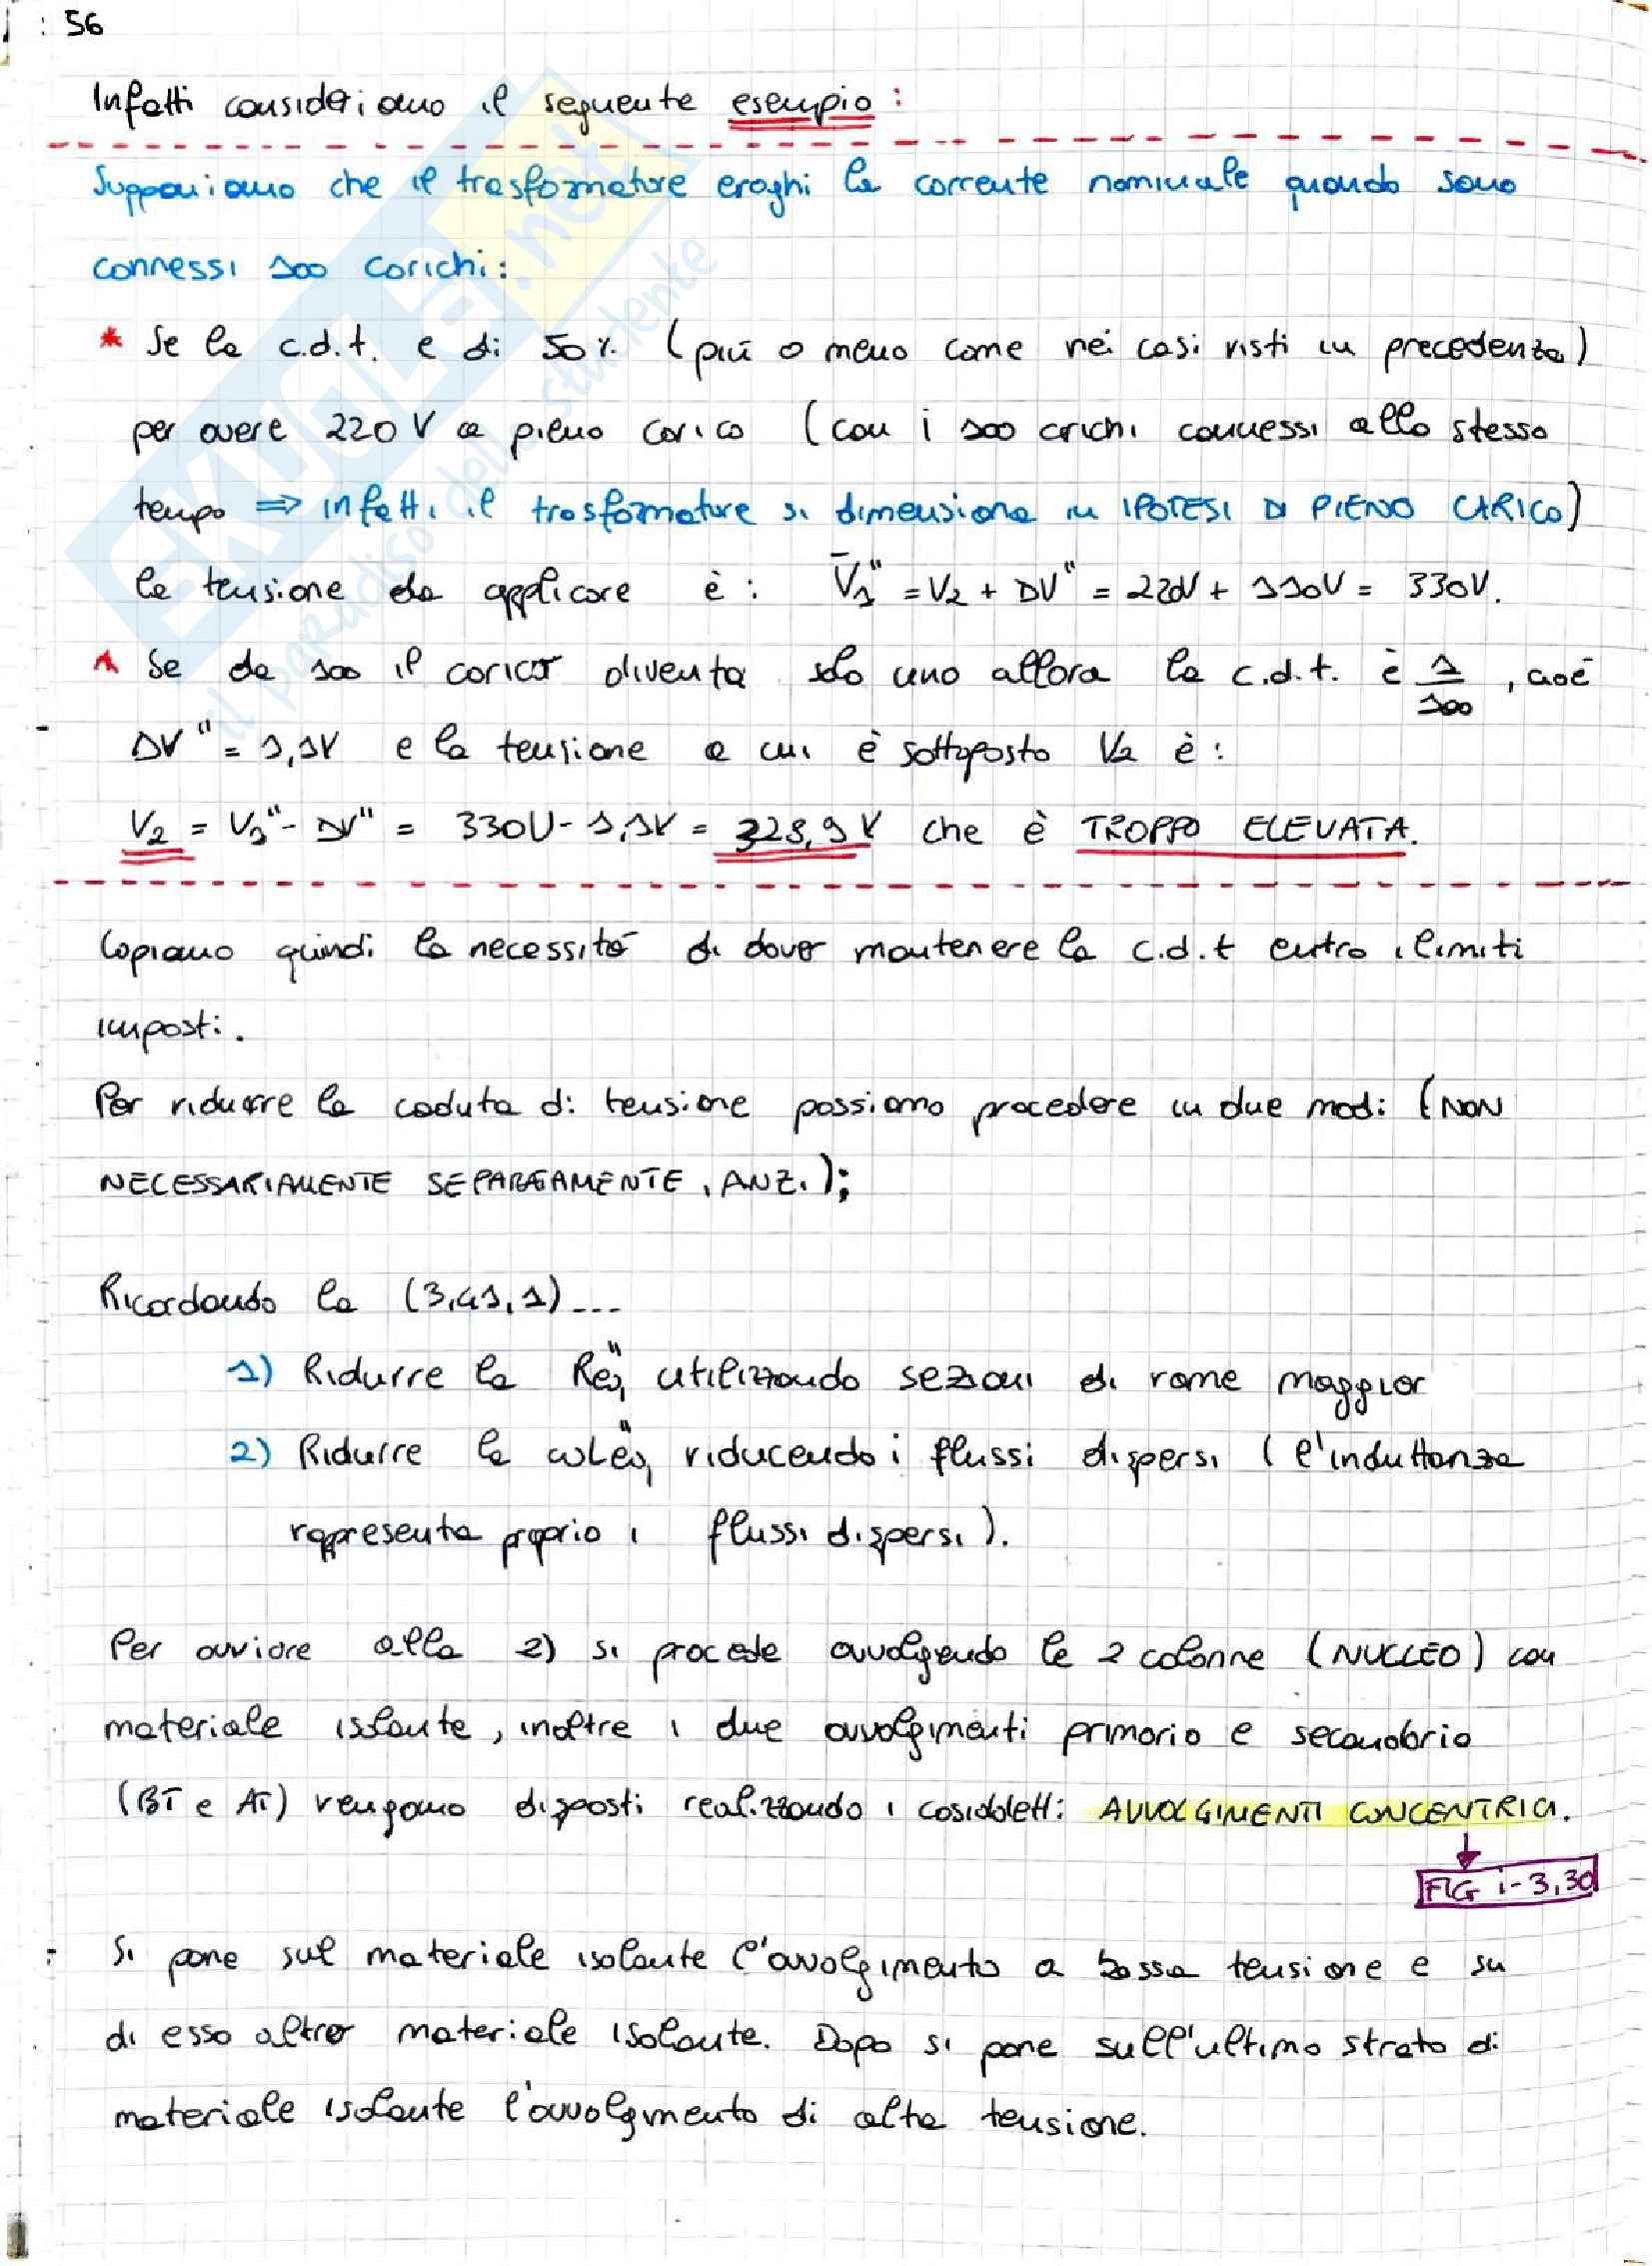 : 56
Infatti consideriamo il seguente esempio:
Supponiamo che il trasformatore eroghi la corrente nominale quando sono
connessi 100 carichi:
* Se la c.d.t. e di 50% (più o meno come nei casi visti in precedenza)
per avere 220V a pieno carico (con i 100 crichi connessi allo stesso
tempo ⇒ infatti il trasformatore si dimensiona in IPOTESI DI PIENO CARICO)
la tensione da applicare è: V̄1" = V2 + ΔV" = 220V + 110V = 330V.
* Se da 100 il carico diventa solo uno allora la c.d.t. è 1/100, cioè
ΔV" = 1,1V e la tensione a cui è sottoposto V2 è:
V2 = V1" - ΔV" = 330V - 1,1V = 328,9V che è TROPPO ELEVATA.
Capiamo quindi la necessità di dover mantenere la c.d.t entro i limiti
imposti.
Per ridurre la caduta di tensione possiamo procedere in due modi (NON
NECESSARIAMENTE SEPARATAMENTE, ANZI);
Ricordando la (3,41,1)...
1) Ridurre la Re1" utilizzando sezioni di rame maggior
2) Ridurre la ωLe1" riducendo i flussi dispersi (l'induttanza
rappresenta proprio i flussi dispersi).
Per ovviare alla 2) si procede avvolgendo le 2 colonne (NUCLEO) con
materiale isolante, inoltre i due avvolgimenti primario e secondario
(BT e AT) vengono disposti realizzando i cosiddetti AVVOLGIMENTI CONCENTRICI.
FIG i-3,30
Si pone sul materiale isolante l'avvolgimento a bassa tensione e su
di esso altro materiale isolante. Dopo si pone sull'ultimo strato di
materiale isolante l'avvolgimento di alta tensione.
SKUOLA.net
il paradiso dello studente